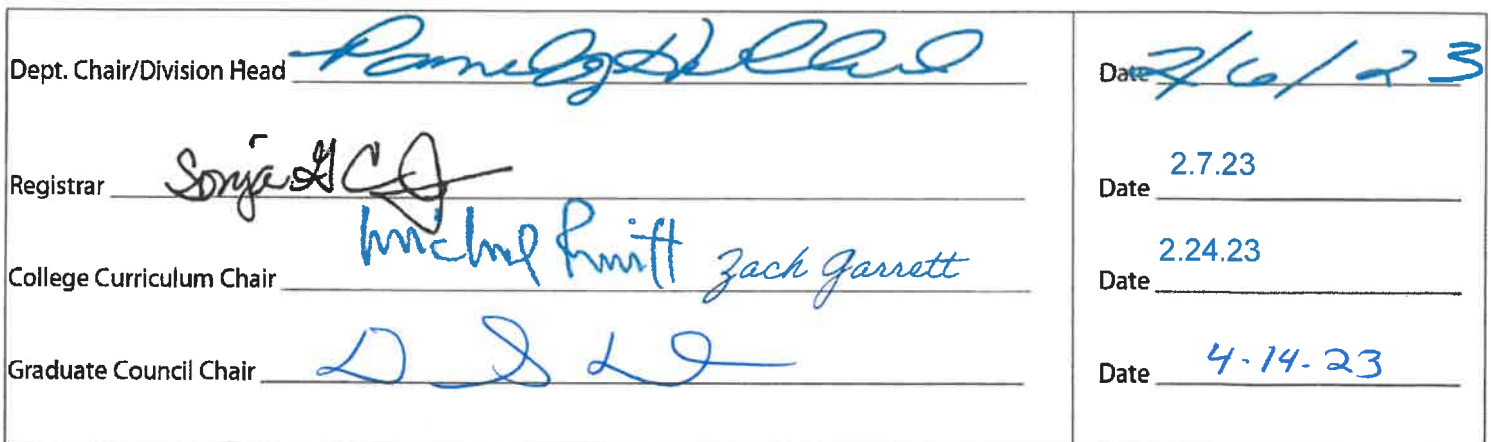 Dept. Chair/Division Head Pamela Holland Date 2/6/23
Registrar Sonja G C Date 2.7.23
College Curriculum Chair Michael Zach Garrett Date 2.24.23
Graduate Council Chair Date 4-14-23